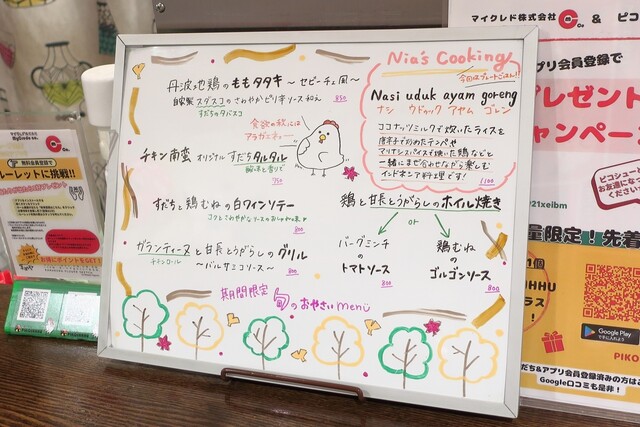 丹波地鶏のももタタキ 〜セビーチェ風〜
自家製 スダスコのさわやかピリ辛ソース和え 850
すだちのタバスコ
食欲の秋には
アラガエネェー…
チキン南蛮 オリジナル すだちタルタル
750
すだちと鶏むねの白ワインソテー
800
ガランティーヌと甘長とうがらしのグリル
チキンロール
〜バルサミコソース〜 800
Nia's Cooking
今回はプレートごはん!!
Nasi uduk ayam goreng
ナシ ウドゥック アヤム ゴレン
ココナッツミルクで炊いたライスを
唐辛子で炒めたテンペや
マリナンスパイスで焼いた鶏などと
一緒にまぜ合わせながら楽しむ
インドネシア料理です!
1100
鶏と甘長とうがらしのホイル焼き
or
バーグミンチ
のトマトソース
800
鶏むねの
ゴルゴンソース
800
期間限定
のおやさいmenü
マイクレド株式会社 & ピコ
アプリ会員登録で
プレゼント
キャンペーン
ピコシュー
お友達になって
ください
21xeibm
量限定!先着
1個
OHHU
ラス
Google Play
で手に入れよう
PIKO
すだち&アプリ会員登録済みの方は
Google口コミも是非!
無料会員登録で
ルーレットに挑戦!!
お得にポイントもGET!